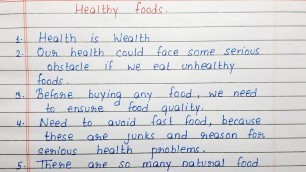 Healthy foods.
1. Health is Wealth
2. Our health could face some serious
obstacle if we eat unhealthy
foods.
3. Before buying any food, we need
to ensure food quality.
4. Need to avoid fast food, because
these are junks and reason for
serious health problems.
5. There are so many natural food